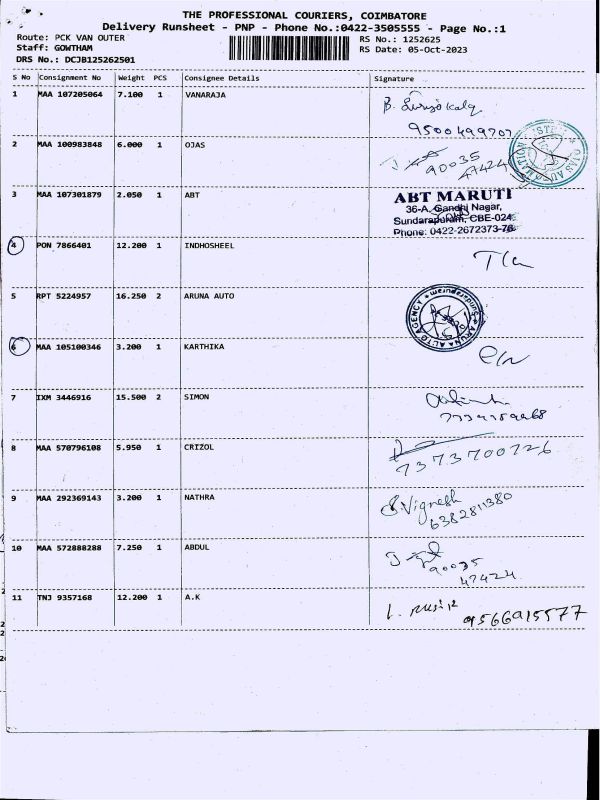 THE PROFESSIONAL COURIERS, COIMBATORE
Delivery Runsheet - PNP - Phone No.:0422-3505555 - Page No.:1
Route: PCK VAN OUTER RS No.: 1252625
Staff: GOWTHAM RS Date: 05-Oct-2023
DRS No.: DCJB125262501
S No Consignment No Weight PCS Consignee Details Signature
1 MAA 107205064 7.100 1 VANARAJA
9500499707
2 MAA 100983848 6.000 1 OJAS
90035
47424
3 MAA 107301879 2.050 1 ABT
ABT MARUTI
36-A, Gandhi Nagar,
Sundarapuram, CBE-024.
Phone: 0422-2672373-76
4 PON 7866401 12.200 1 INDHOSHEEL
5 RPT 5224957 16.250 2 ARUNA AUTO
ARUNA AUTO AGENCY
6 MAA 105100346 3.200 1 KARTHIKA
7 IXM 3446916 15.500 2 SIMON
8 MAA 570796108 5.950 1 CRIZOL
7373700726
9 MAA 292369143 3.200 1 NATHRA
S.Vignesh
6382811380
10 MAA 572888288 7.250 1 ABDUL
90035
47424
11 TNJ 9357168 12.200 1 A.K
9566915577